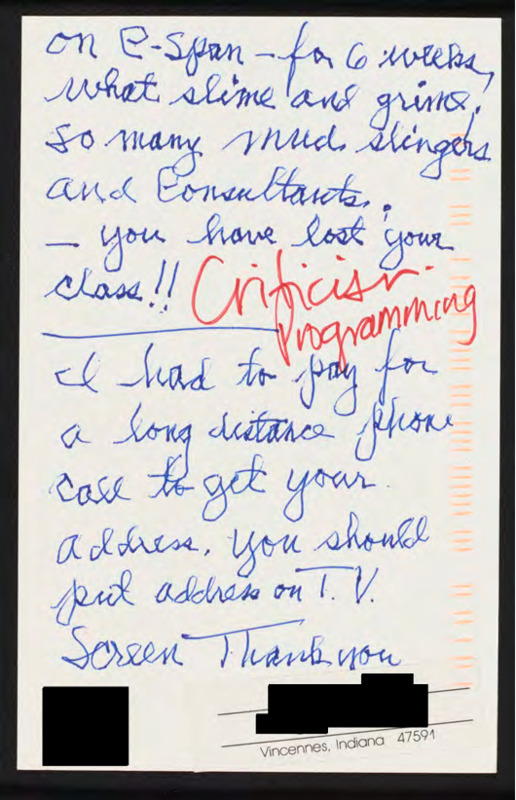 on C-Span - for 6 weeks,
what slime and grime!
So many mud slingers
and Consultants.
- you have lost your
class!!
Criticism-
Programming
I had to pay for
a long distance phone
call to get your
address. You should
put address on T.V.
Screen Thank you
Vincennes, Indiana 47591